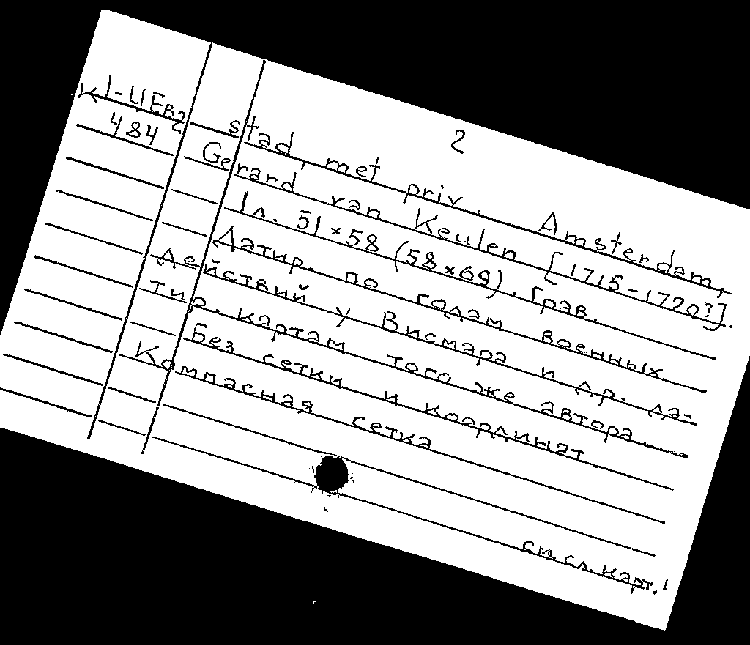 2
К 1-ЦЕв2
484
stad, met priv. Amsterdam,
Gerard van Keulen [1715-1720?].
1 л. 51×58 (58×69). Грав.
Датир. по годам военных
действий у Висмара и др. да-
тир. картам того же автора
Без сетки и координат
Компасная сетка
см. сл. карт.